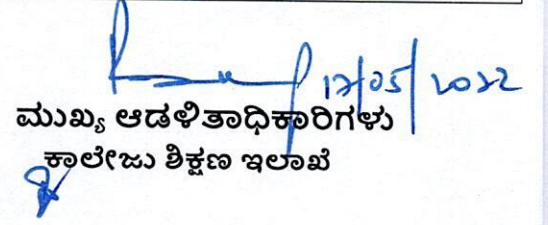 17/05/2022
ಮುಖ್ಯ ಆಡಳಿತಾಧಿಕಾರಿಗಳು
ಕಾಲೇಜು ಶಿಕ್ಷಣ ಇಲಾಖೆ